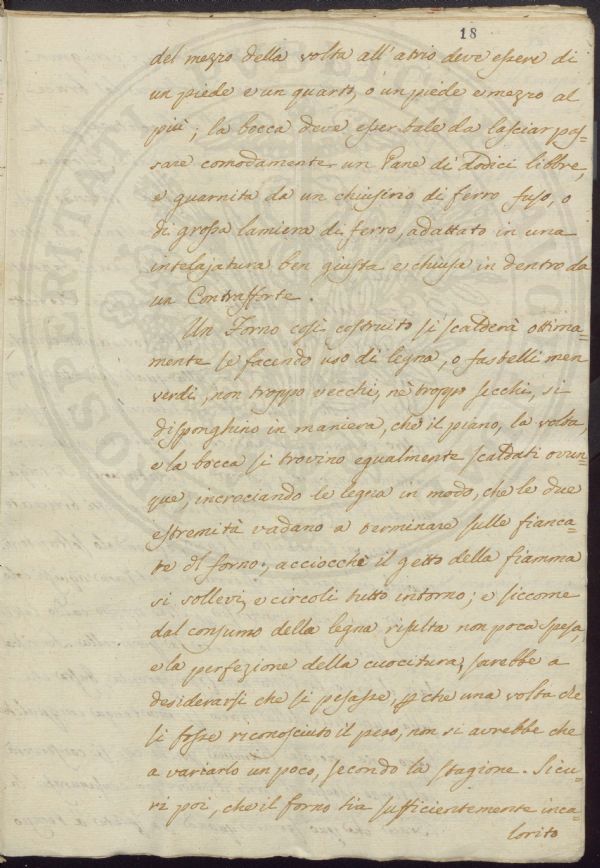 18
del mezzo della volta all'atrio deve essere di
un piede e un quarto, o un piede e mezzo al
più; la bocca deve esser tale da lasciar pas=
sare comodamente un Pane di dodici libbre,
e guarnita da un chiusino di ferro fuso, o
di grossa lamiera di ferro, adattato in una
intelajatura ben giusta e chiusa in dentro da
un Contrafforte.
Un Forno così costruito si scalderà ottima=
mente se facendo uso di legna, o fastelli men
verdi, non troppo vecchi, nè troppo secchi, si
disponghino in maniera, che il piano, la volta,
e la bocca si trovino egualmente scaldati ovun=
que, incrociando le legna in modo, che le due
estremità vadano a terminare sulle fianca=
te dl forno, acciocchè il getto della fiamma
si sollevi, e circoli tutto intorno; e siccome
dal consumo della legna risulta non poca spesa,
e la perfezione della cuocitura, sarebbe a
desiderarsi che si pesasse, che una volta che
si fosse riconosciuto il peso, non si avrebbe che
a variarlo un poco, secondo la stagione. Sicu=
ri poi, che il forno sia sufficientemente inca=
lorito
PROSPERITATI PUBLICAE